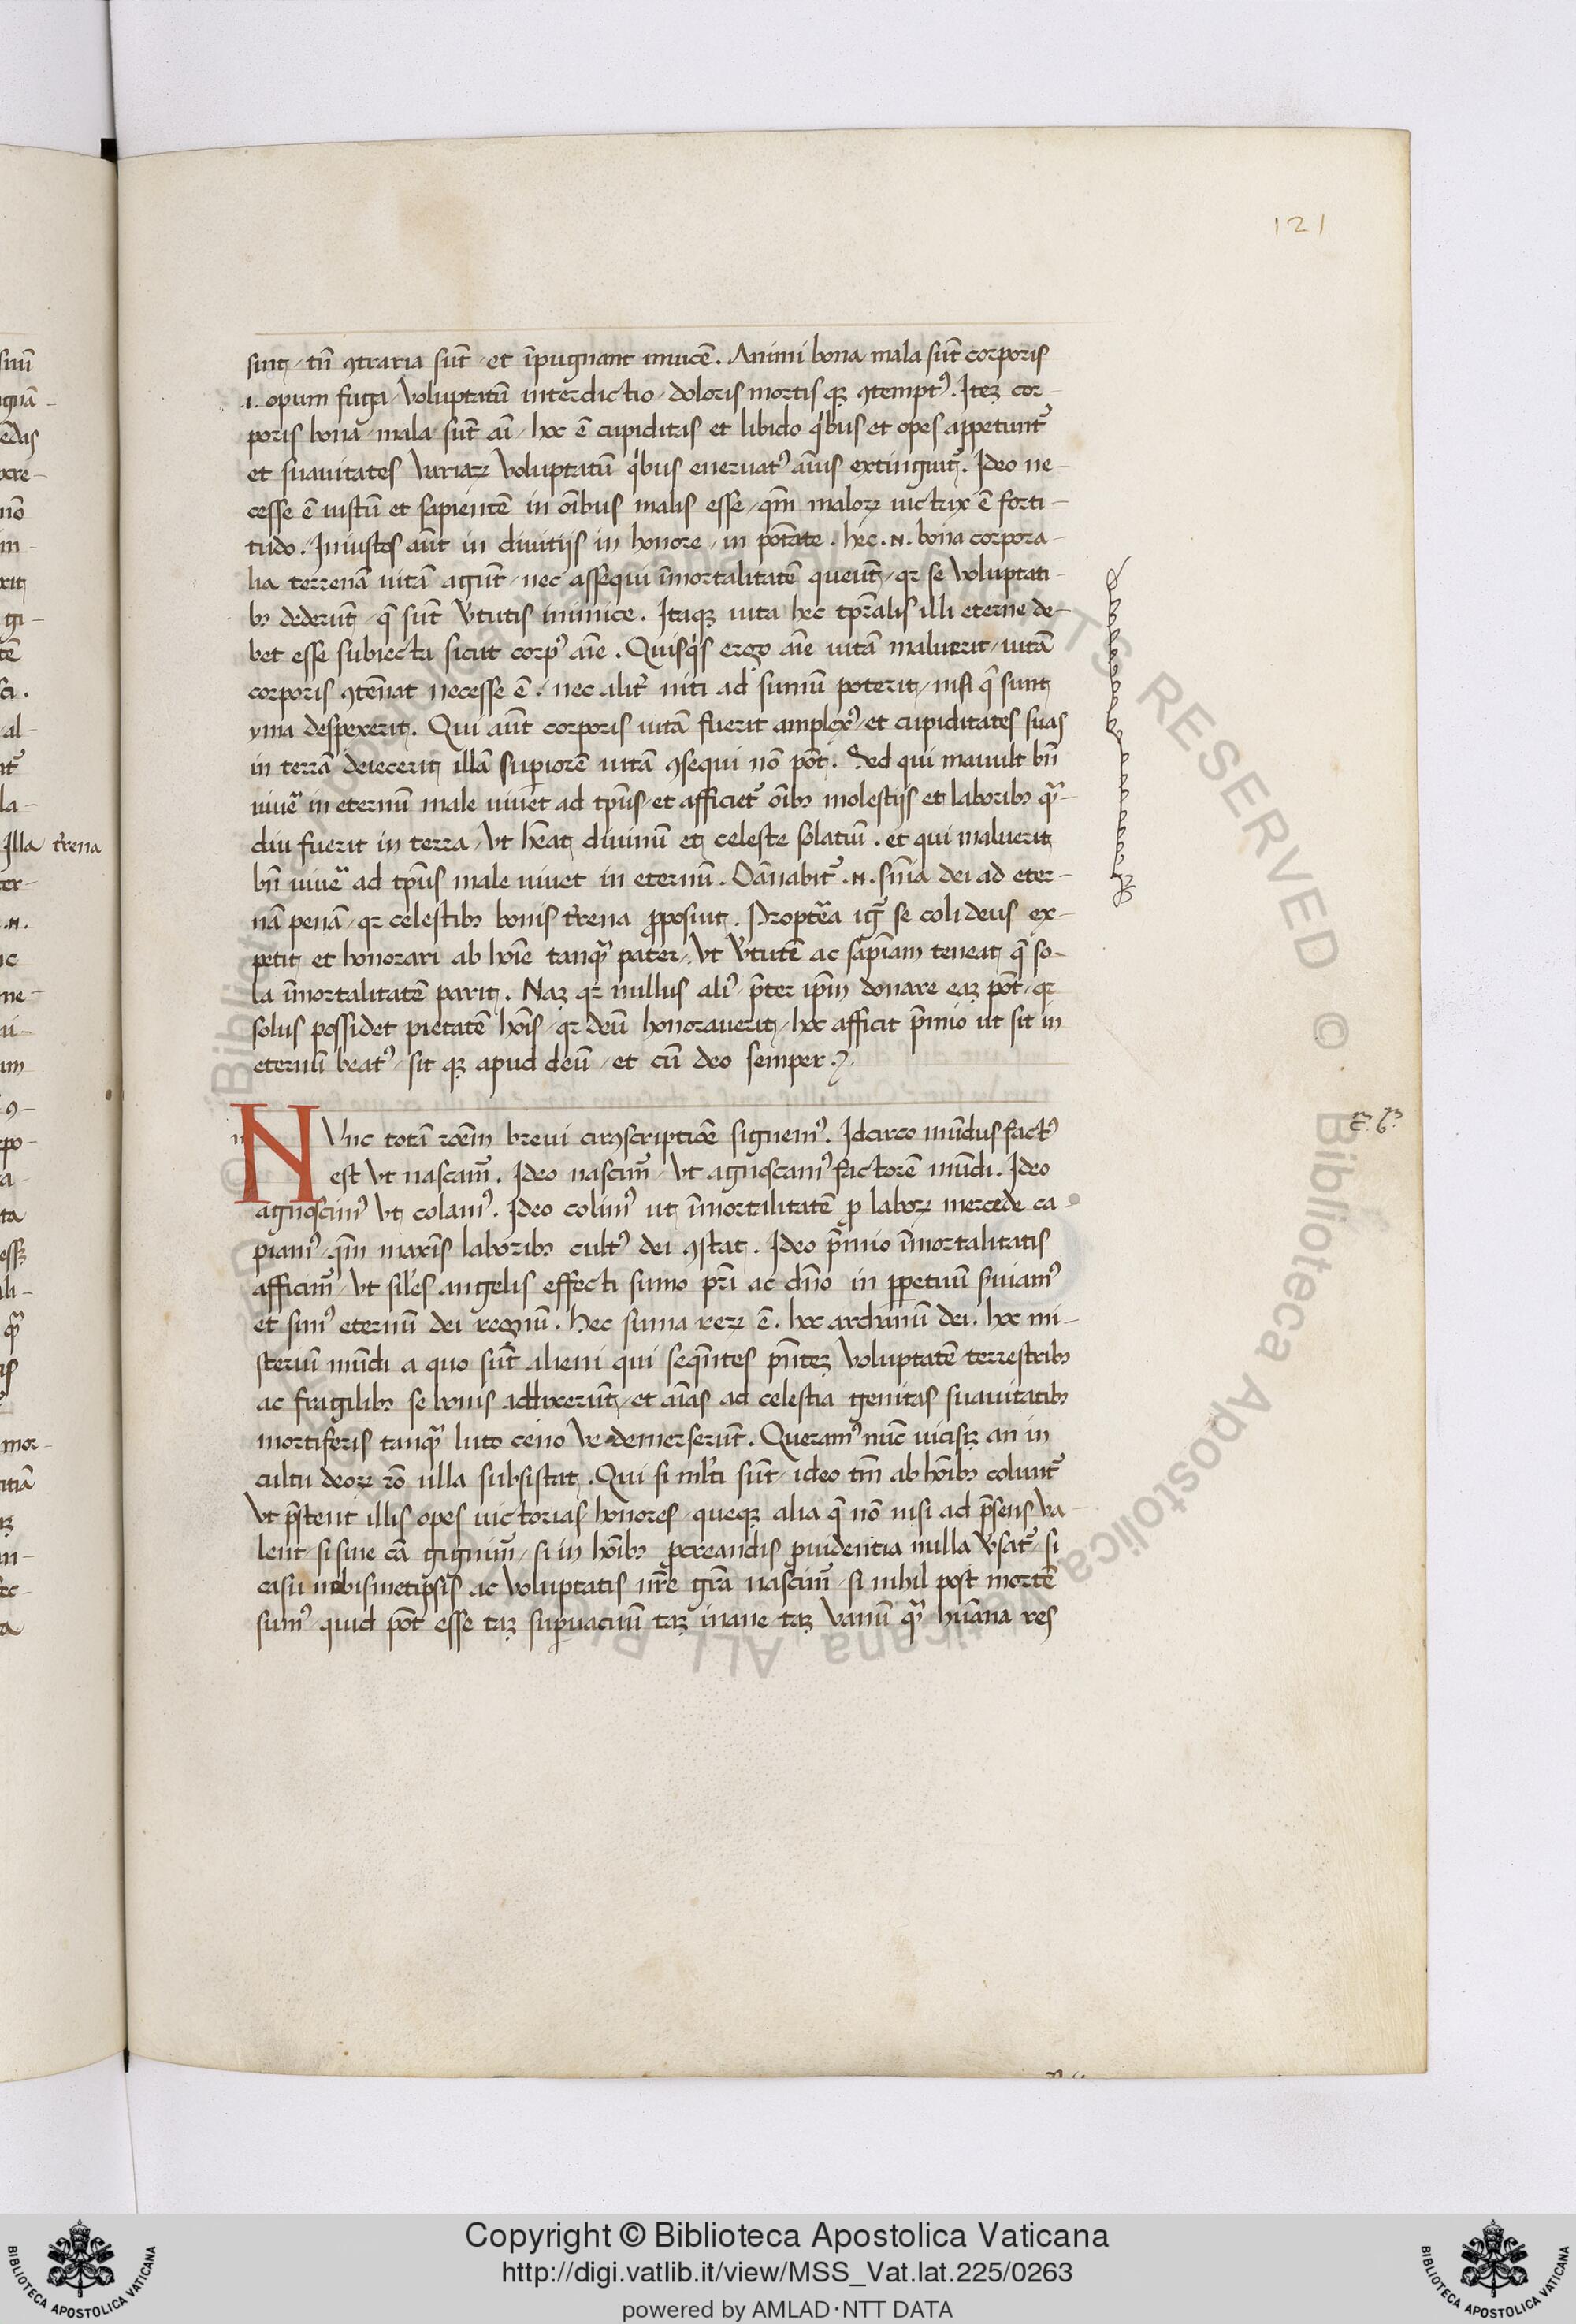 121
sint / tñ ꝯtraria sūt / et īpugnant inuicē . Animi bona mala sūt corporis
.i. opum fuga / Voluptatū interdictio / doloris mortis qꝫ ꝯtemptꝰ . Iteꝫ cor-
poris bona / mala sūt aī / hoc ē cupiditas et libido qⁱbus et opes appetuntᷣ
et suauitates Variaꝝ Voluptatū qⁱbus eneruatꝰ aīus extinguitᷣ . Ideo ne-
cesse ē iustū et sapientē in oībus malis esse / qm̄ maloꝝ uictrix ē forti-
tudo . Iniustos aūt in diuitijs in honore / in ptāte . hec .N. bona corpora-
lia terrenā uitā agūt / nec assequi īmortalitatē queūt / qꝛ se Voluptati-
bꝫ dederūt / q̄ sūt Vtutis inimice . Itaqꝫ uita hec tpr̄alis illi eterne de-
bet esse subiecta sicut corpꝰ aīe . Quisqⁱs ergo aīe uitā maluerit / uitā
corporis ꝯtēnat necesse ē / nec alit̄ niti ad sumū poterit / nisi q̄ sunt
yma despexerit . Qui aūt corporis uitā fuerit amplexꝰ / et cupiditates suas
in terrā deiecerit illā suꝑiorē uitā ꝯsequi nō pōt . Sed qui mauult bn̄
uiue᷑ in eternū male uiuet ad tp̄us / et afficietᷣ oībꝫ molestijs et laboribꝫ qᵃ-
diu fuerit in terra / Vt hēat diuinū et celeste solatiū . et qui maluerit
bn̄ uiue᷑ ad tp̄us male uiuet in eternū . Dānabitᷣ .N. sn̄ia dei ad eter-
nā penā / qꝛ celestibꝫ bonis t̄rena p̄posuit . Propt̄ea igᷣ se coli deus ex-
petit et honorari ab hoīe tanqᵃ pater / Vt Vtutē ac sapīam teneat q̄ so-
la īmortalitatē parit . Naꝫ qꝛ nullus aliꝰ p̄ter ip̄m donare eaꝫ pōt / qꝛ
solus possidet pietatē hoīs / qꝛ deū honorauerit / hoc afficit p̄mio ut sit in
eternū beatꝰ / sit qꝫ apud deū / et cū deo semper .
n
NVnc totā rōem breui circūscriptiōe signemꝰ . Idcirco mūdus factꝰ
est Vt nascamᷣ . Ideo nascimᷣ / Vt agnoscamꝰ factorē mūdi . Ideo
agnoscimꝰ Vt colamꝰ . Ideo colimꝰ ut īmortalitatē ꝓ laboꝝ mercede ca
piamꝰ / qm̄ maxīs laboribꝫ cultꝰ dei ꝯstat . Ideo p̄mio īmortalitatis
afficimᷣ / Vt sil̄es angelis effecti sumo pr̄i ac dn̄o in ꝑpetuū s̄uiamꝰ
et simꝰ eternū dei regnū . Hec suma reꝝ ē . hoc archanū dei . hoc mi-
steriū mūdi a quo sūt alieni qui seqūtes pn̄teꝫ Voluptatē terrestribꝫ
ac fragilibꝫ se bonis addixerūt / et aīas ad celestia genitas suauitatibꝫ
mortiferis tanqᵃ luto ceno Ve demerserūt . Queramꝰ nūc uicisiꝫ an in
cultu deoꝝ rō ulla subsistat . Qui si ml̄ti sūt / ideo tm̄ ab hoībꝫ coluntᷣ
Vt p̄stent illis opes uictorias honores / queqꝫ alia q̄ nō nisi ad p̄sens Va-
lent / si sine cā gignimᷣ / si in hoībꝫ ꝓcreandis ꝓuidentia nulla Vsatᷣ / si
casu nobismetipsis ac Voluptatis nr̄e grā nascimᷣ / si nihil post mortē
sumꝰ quid pōt esse taꝫ suꝑuacuū taꝫ inane taꝫ Vanū qᵃ humana res
Copyright © Biblioteca Apostolica Vaticana
http://digi.vatlib.it/view/MSS_Vat.lat.225/0263
powered by AMLAD·NTT DATA